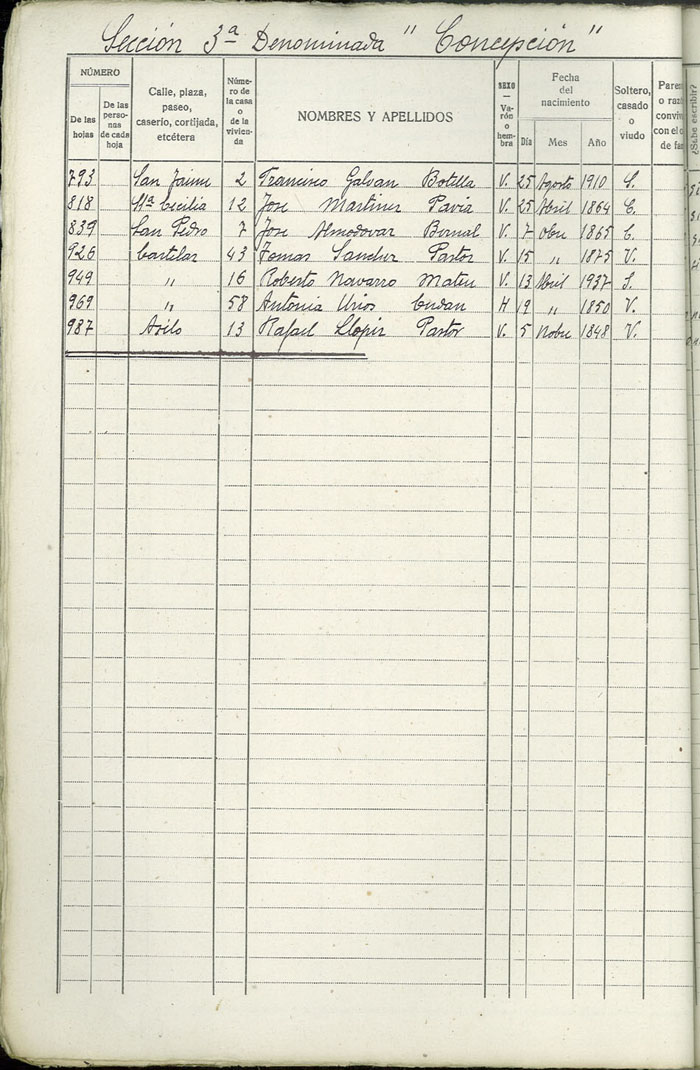 Sección 3ª Denominada " Concepción "
NÚMERO
De las hojas
De las personas de cada hoja
Calle, plaza, paseo, caserío, cortijada, etcétera
Número de la casa o de la vivienda
NOMBRES Y APELLIDOS
SEXO — Varón o hembra
Fecha del nacimiento
Día Mes Año
Soltero, casado o viudo
¿Sabe escribir?
793 San Jaime 2 Francisco Galvan Botella V. 25 Agosto 1910 S.
818 Mª Cecilia 12 Jose Martinez Pavia V. 25 Abril 1864 C.
839 San Pedro 7 Jose Almodovar Bernal V. 7 Obre 1865 C.
926 Castelar 43 Tomas Sanchez Pastor V. 15 " 1875 V.
949 " 16 Roberto Navarro Mateu V. 13 Abril 1937 S.
969 " 58 Antonia Urios Cerdan H 19 " 1850 V.
987 Asilo 13 Rafael Llopis Pastor V. 5 Nobre 1848 V.